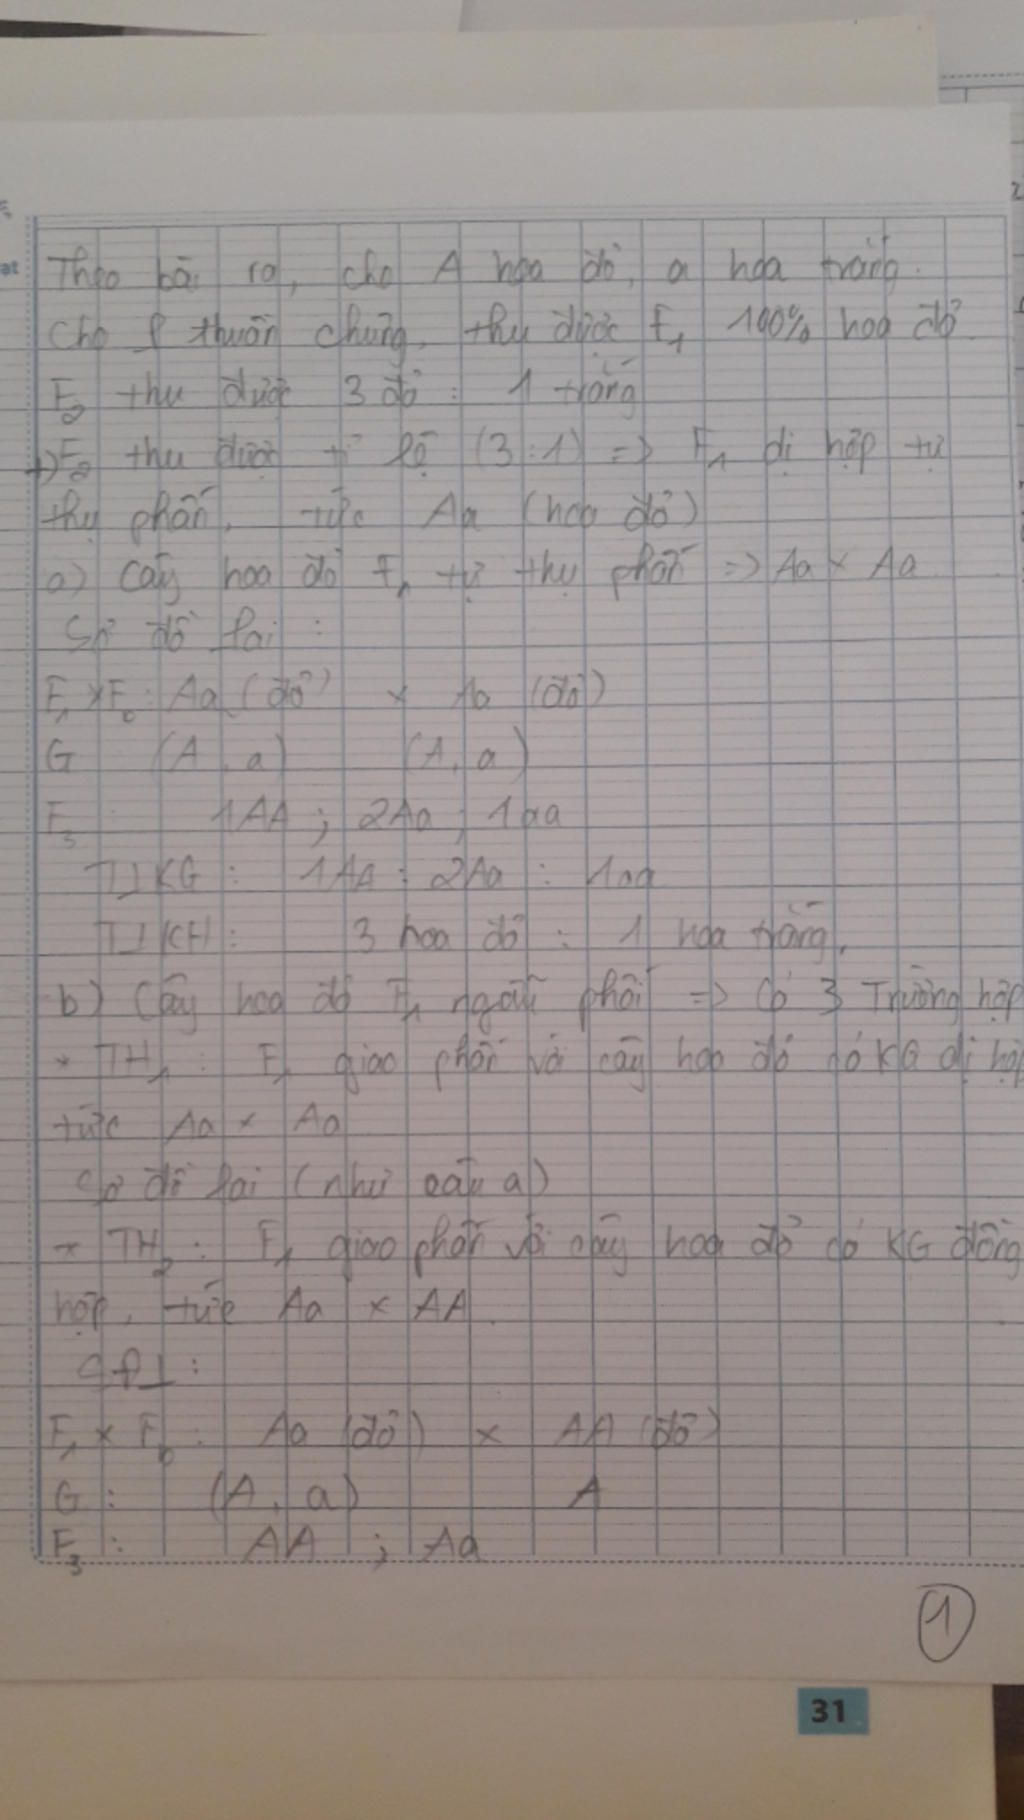 Theo bài ra, cho A hoa đỏ, a hoa trắng.
Cho P thuần chủng, thu được F1 100% hoa đỏ
F2 thu được 3 đỏ : 1 trắng
+) F2 thu được tỉ lệ (3:1) => F1 dị hợp tự
thụ phấn, tức Aa (hoa đỏ)
a) Cây hoa đỏ F1 tự thụ phấn => Aa x Aa
Sơ đồ lai :
F1 x F6: Aa (đỏ) x Aa (đỏ)
G (A, a) (A, a)
F3 1AA ; 2Aa ; 1aa
TLKG : 1AA : 2Aa : 1aa
TLKH : 3 hoa đỏ : 1 hoa trắng.
b) Cây hoa đỏ F1 ngẫu phối => Có 3 Trường hợp
* TH1 : F1 giao phấn với cây hoa đỏ có KG dị hợ
tức Aa x Aa
Sơ đồ lai (như câu a)
* TH2 : F1 giao phấn với cây hoa đỏ có KG đồng
hợp, tức Aa x AA.
SĐL :
F1 x F6 : Aa (đỏ) x AA (đỏ)
G : (A, a) A
F3 : AA ; Aa
1
31